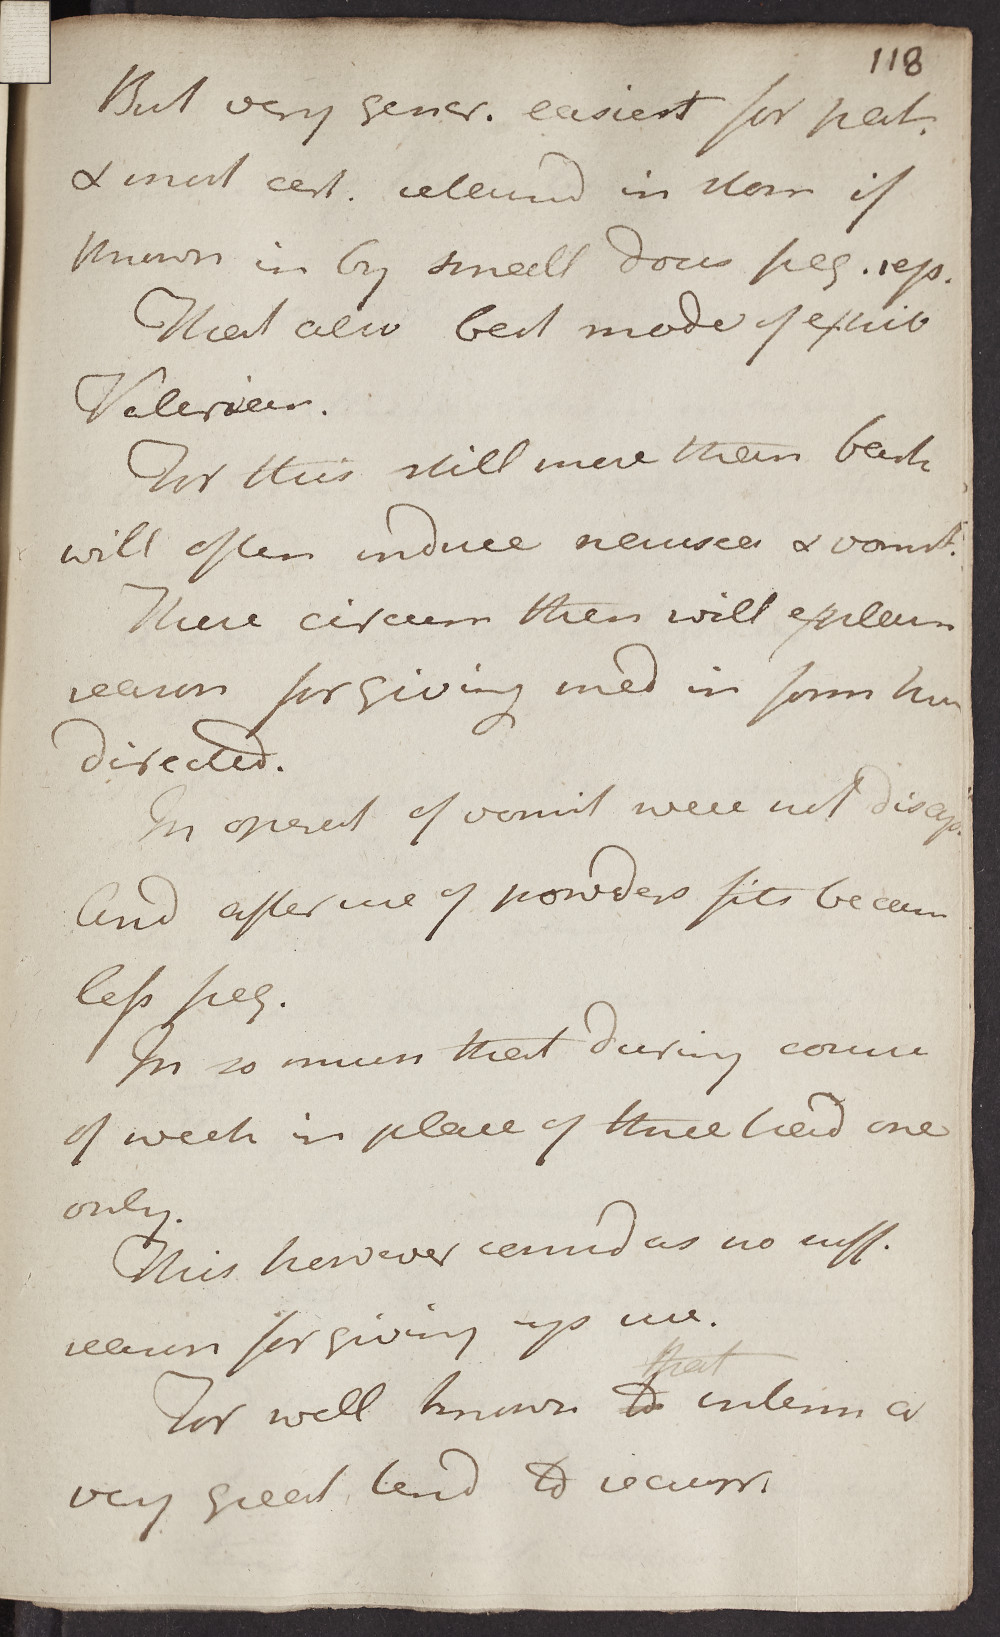 118
But very gener. easiest for pat.
& most cert. retained in stom if
thrown in by small doses freq. rep.
That also best mode of exhib
Valerian.
For this still more than bark
will often induce nausea & vomit.
These circum then will explain
reason for giving med in form here
directed.
In operat of vomit were not disap.
And after use of powders fits becam
less freq.
In so much that during course
of week in place of three had one
only.
This however consid as no suff.
reason for giving up use.
For well known that interm a
very great tend to recurr.